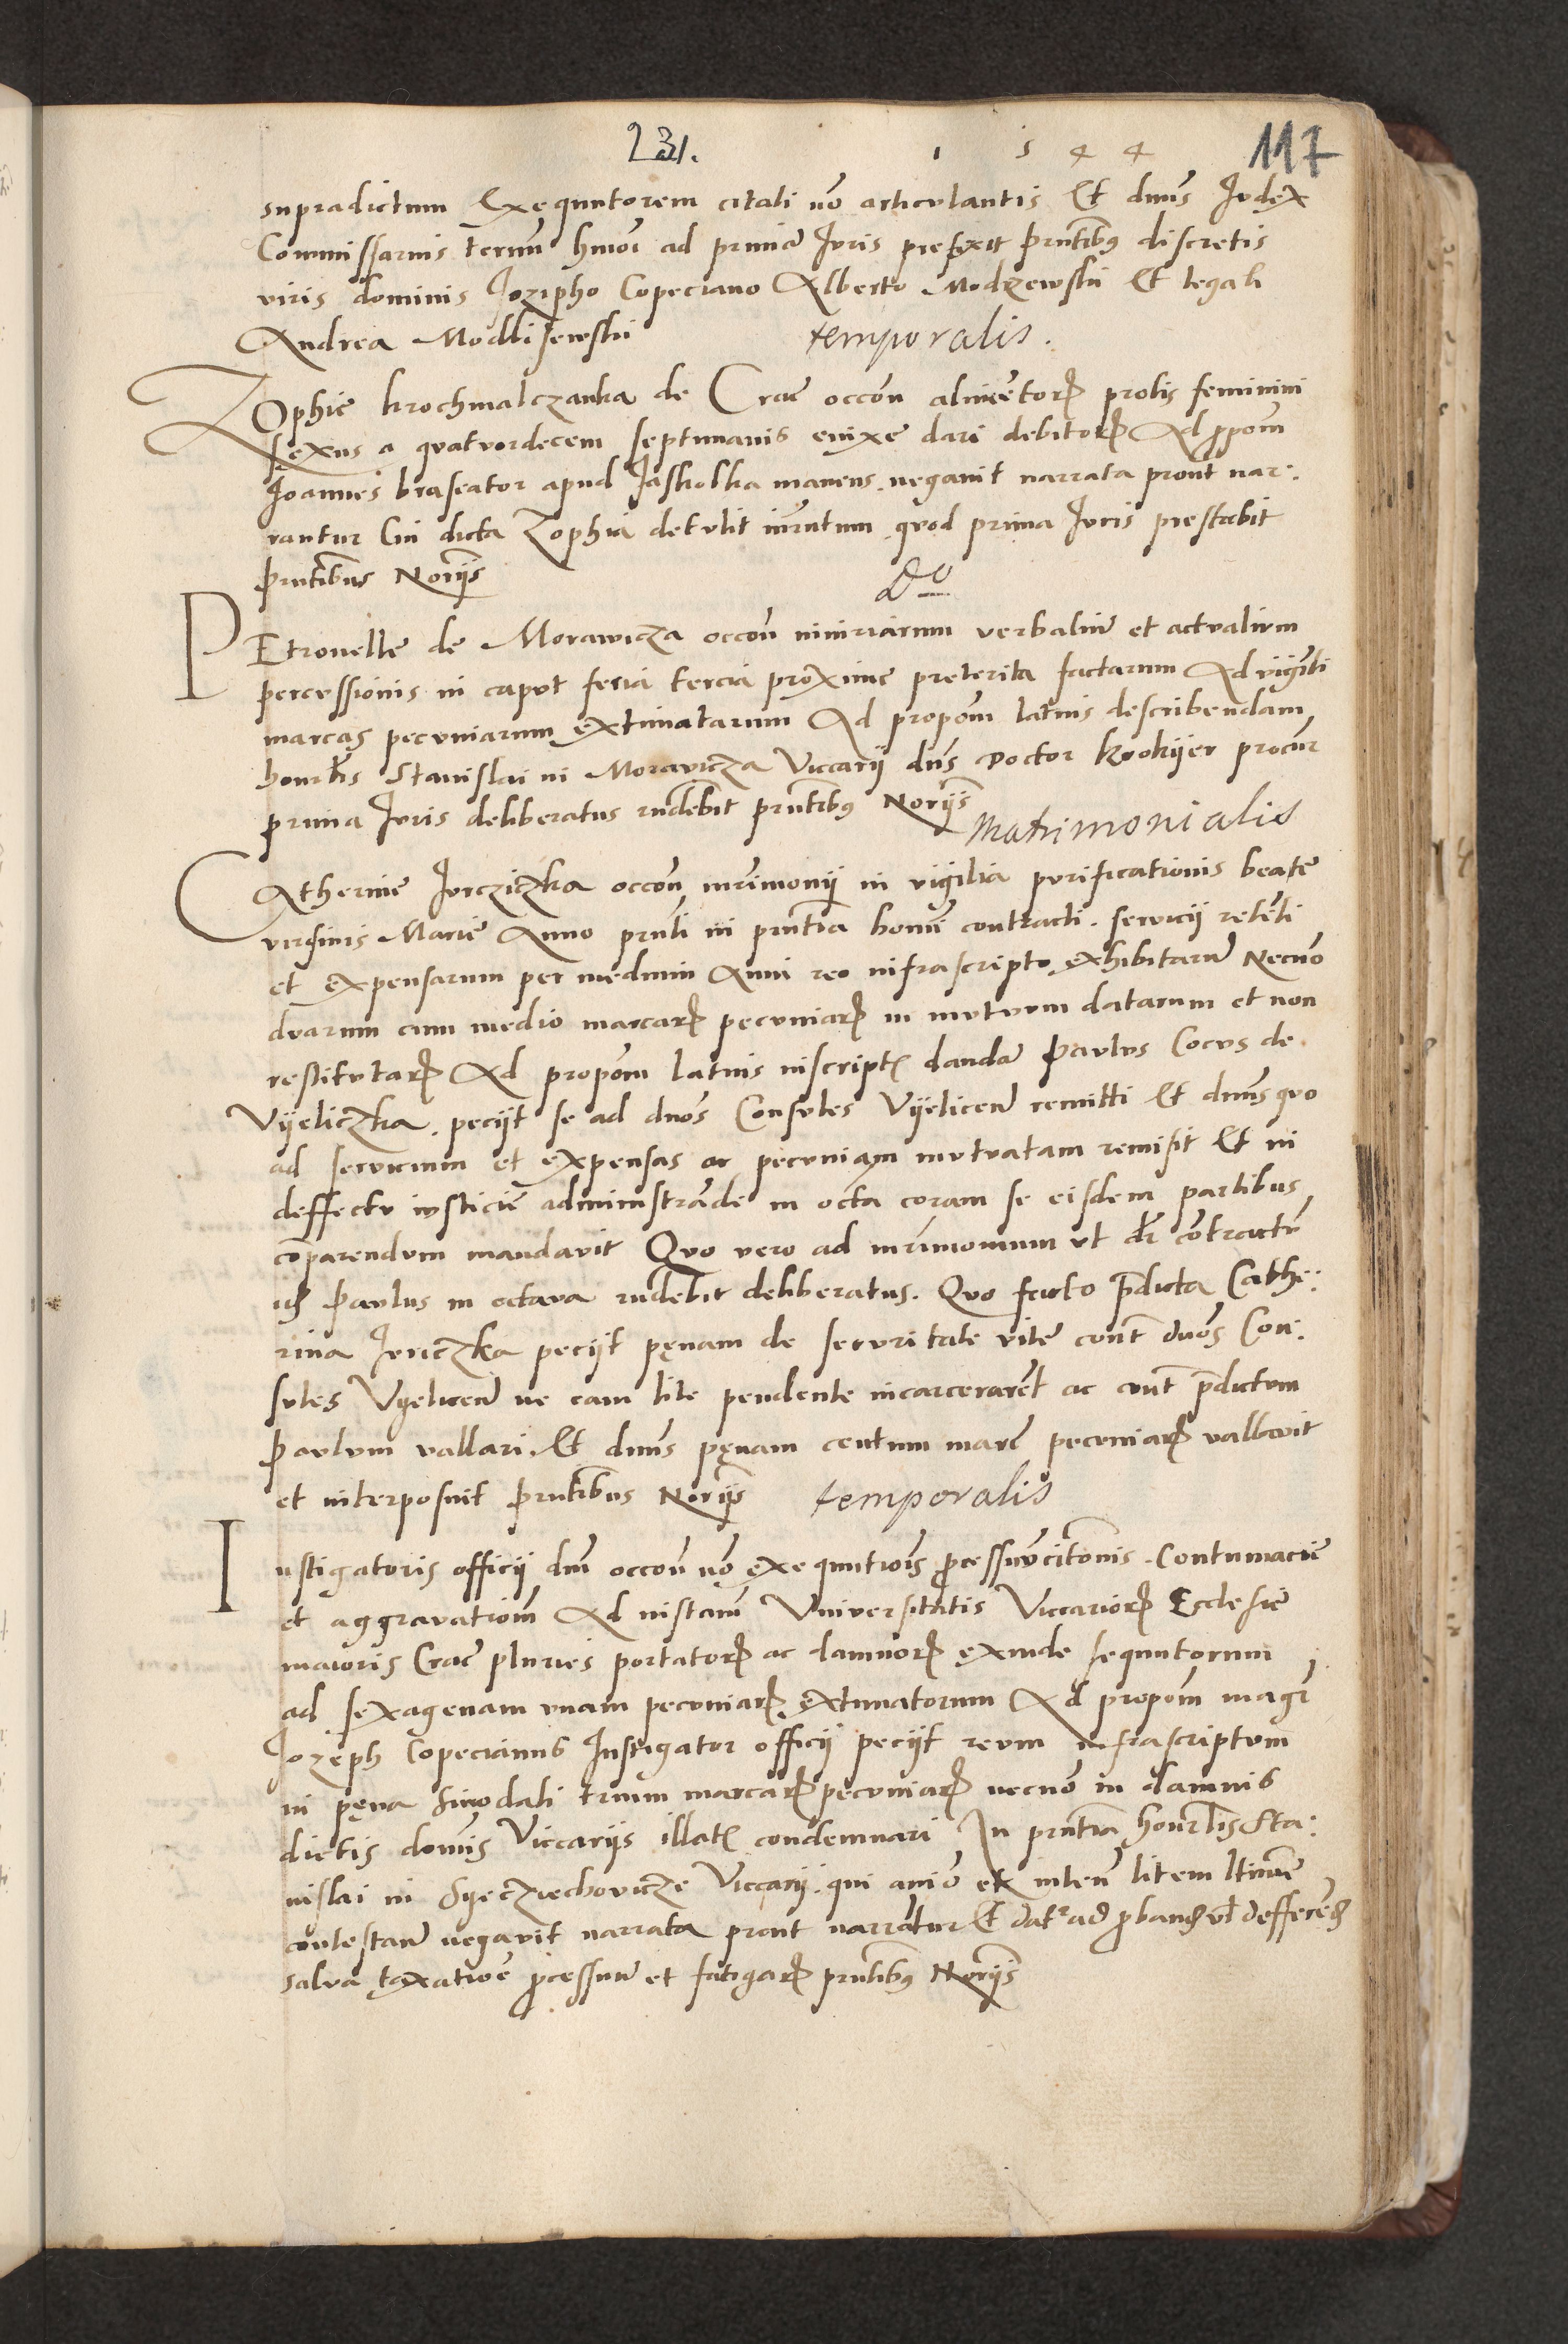 231. 1 5 4 4 117
supradictum Exequutorem citati nō articulantis Et dnūs Judex
Commissarius termū hmōi ad primā Juris prefixit Pnтibus discretis
viris dominis Jozepho Copeciano Alberto Modrzewski Et legali
Andrea Modlisewski temporalis.
Zophie krochmalczanka de Crac̄ occoñ alimētorꝝ prolis feminini
sexus a quatuordecem septimanis enixe dari debitorꝝ Ad ppom̄
Joannes braseator apud Jaskolka manens negavit narrata prout nar:
rantur Cui dicta Zophia detulit iurᵃmtum quod prima Juris prestabit
Pnтibus Norijs Dᵒ
PEtronelle de Morawicza occoñ iniuriarum verbaliū et actualium
percussionis in caput feria tercia proxime preterita factarum Ad viginti
marcas pecuniarum extimatarum Ad propom̄ latius describendam
honorᵇlis Stanislai in Moravicza Viccarij dn̄s Doctor krokijer procur̄
prima Juris deliberatus rn̄debit pn̄tibus Norijs
Matrimonialis
Catherine Jurcziczka occoñ mr̄imonij in vigilia purificationis beate
virginis Marie Anno pn̄ti in pn̄tia homī contracti. servicij retēti
et expensarum per medium Anni reo infrascripto exhibitarū Necnō
duarum cum medio marcarꝝ pecuniarꝝ in mutuum datarum et non
restitutarꝝ Ad propom̄ latius inscriptꝭ dandā Paulus Cocus de
Vijeliczka. pecijt se ad dnōs Consules Vijelicen̄ remitti Et dnūs quo
ad servicium et expensas ac pecuniam mutuatam remisit Et in
deffectu iusticie administrāde in octā coram se eisdem partibus
cōparendum mandavit Quo vero ad mr̄imonium ut dr̄ contractū
idē Paulus in octava rn̄debit deliberatus. Quo facto p̄dicta Cathe:
rina Juriczka pecijt penam de securitate vite cont̄ dnōs Con:
sules Vijelicen̄ ne eam lite pendente incarcerarēt ac cont̄ p̄dictum
Paulum vallari Et dnūs penam centum marc̄ pecuniarꝝ vallavit
et interposuit Pn̄tibus Norijs temporalis
Instigatoris officij dn̄i occoñ nō exequutiois ꝓcessuū citōnis. Contumacie
et aggravatiom̄ Ad instam̄ Universitatis Viccariorꝝ Ecclesie
maioris Crac̄ pluries portatorꝝ ac damnorꝝ exinde sequutorum
ad sexagenam unam pecuniarꝝ extimatorum Ad propom̄ magr̄
Jozeph Copecianus Instigator officij pecijt reum infrascriptum
in pena sinodali trium marcarꝝ pecuniarꝝ necnō in damnis
dictis dominis Viccarijs illatꝭ condemnari In pn̄tia honorᵇlis Sta:
nislai in Syeczyechovicze Viccarij. qui aniō et inten̄ litem ltīme
contestan̄ negavit narrata prout narrātur Et datʳ ad ꝓbandꝫ vl̄ deffecēdꝫ
salva taxatiōe ꝓcessuum et fatigarꝝ pn̄tibus Norijs